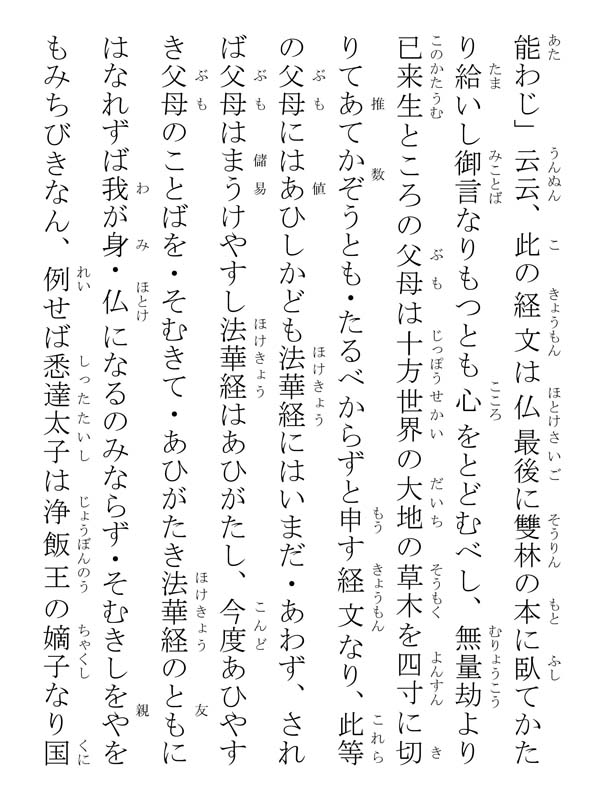 能わじ」云云、此の経文は仏最後に雙林の本に臥てかた
り給いし御言なりもつとも心をとどむべし、無量劫より
已来生ところの父母は十方世界の大地の草木を四寸に切
りてあてかぞうとも・たるべからずと申す経文なり、此等
の父母にはあひしかども法華経にはいまだ・あわず、され
ば父母はまうけやすし法華経はあひがたし、今度あひやす
き父母のことばを・そむきて・あひがたき法華経のともに
はなれずば我が身・仏になるのみならず・そむきしをやを
もみちびきなん、例せば悉達太子は浄飯王の嫡子なり国